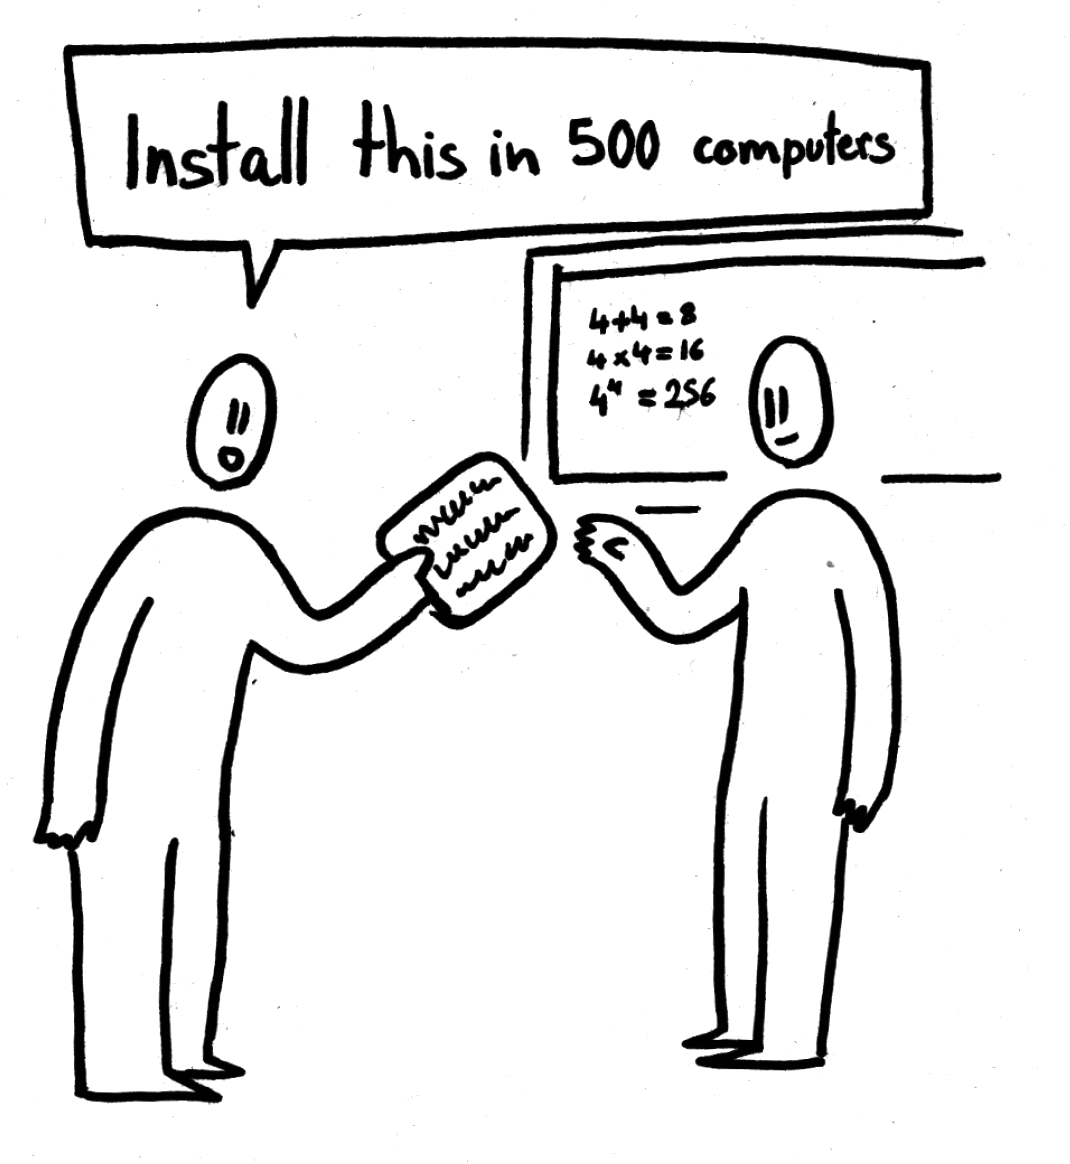 Install this in 500 computers
4+4=8
4x4=16
4⁴ = 256